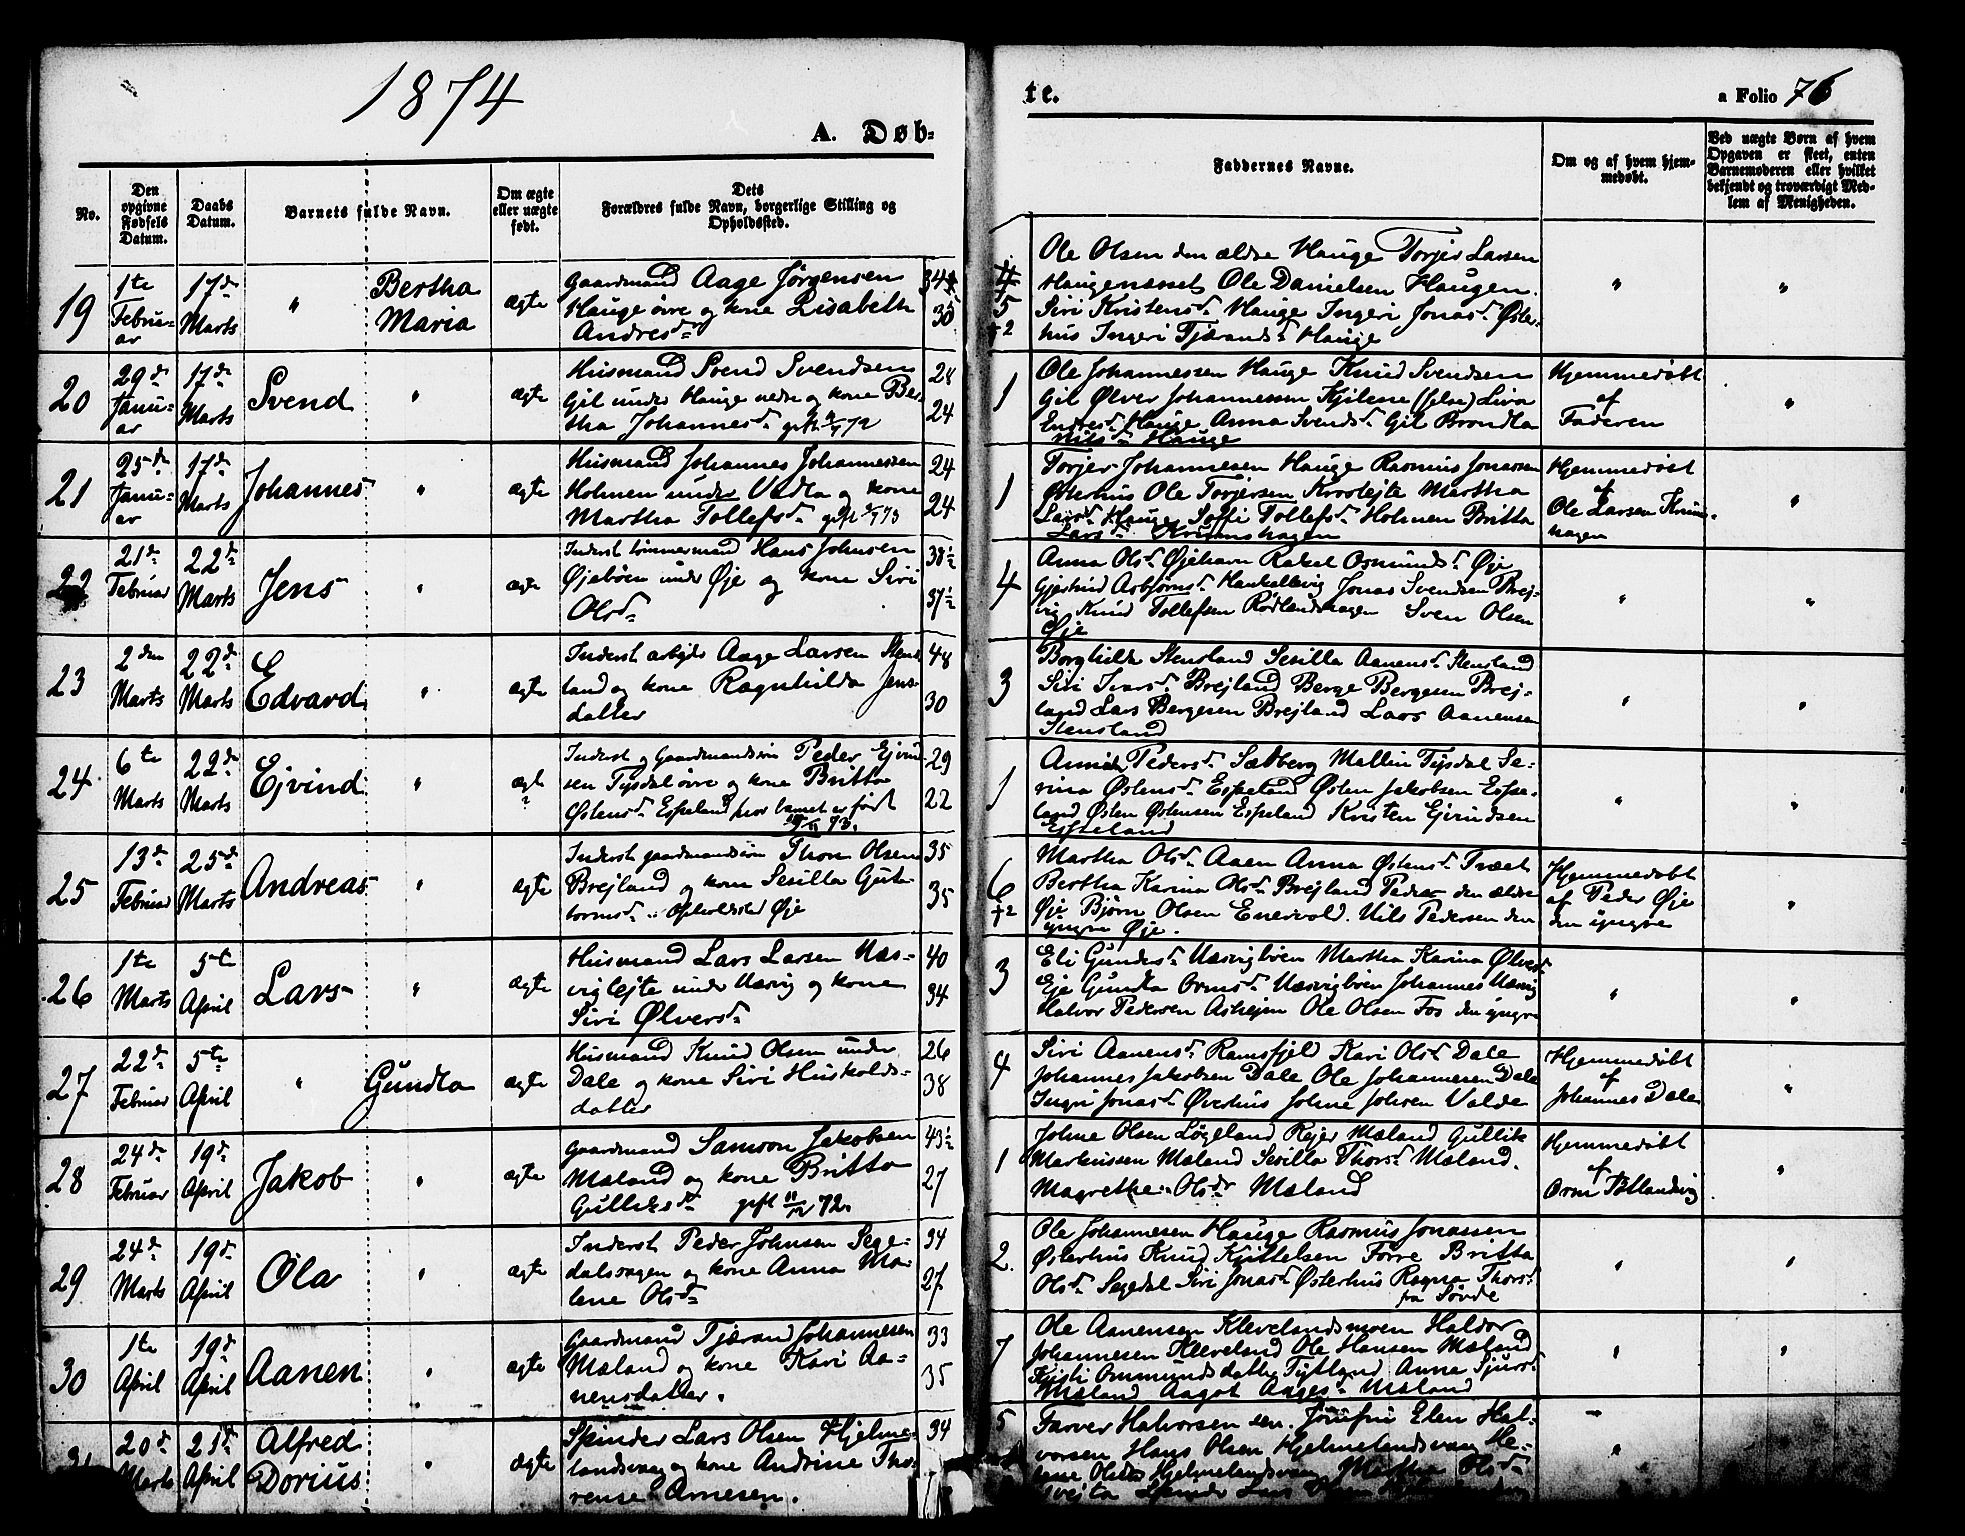 1874
A. Døb-
te.
a Folio 76
No.
Den opgivne Fødsels Datum.
Daabs Datum.
Barnets fulde Navn.
Om ægte eller uægte født.
Dets Forældres fulde Navn, borgerlige Stilling og Opholdssted.
Faddernes Navne.
Om og af hvem hjemmedøbt.
Ved uægte Børn af hvem Opgaven er skeet, enten Barnemoderen eller hvilket bekjendt og troværdigt Medlem af Menigheden.
19
1te Februar
17de Marts
" Bertha Maria
ægte
Gaardmand Aage Jørgensen
Hauge øvre og kone Lisabeth
Andresd.
34
30
5
+2
Ole Olsen den ældre Hauge Torjer Larsen
Haugenæset Ole Danielsen Haugen.
Siri Kristensd. Hauge Ingeri Jonasd. Øster-
hus Ingeri Tjærandsd. Hauge
"
"
20
29de Januar
17de Marts
Svend "
ægte
Husmand Svend Svendsen
Gil under Hauge nedre og kone Ber-
tha Johannesd. gift
28
24
1
Ole Johannessen Hauge Knud Svendsen
Gil Ølver Johannessen Kjilene Liva
Endresd. Hauge Anna Svendsd. Gil Brondla
Nilsd. Hauge
Hjemmedøbt
af
Faderen
"
21
25de Januar
17de Marts
Johannes "
ægte
Husmand Johannes Johannessen
Holmen under Vadla og kone
Martha Tollefsd. gift
24
24
1
Torjer Johannesen Hauge Rasmus Jonassen
Østerhus Ole Torjersen Kroslejte Martha
Larsd. Hauge Soffi Tollefsd. Holmen Britta
Larsd. Krunshagen
Hjemmedøbt
af
Ole Larsen Kruns-
hagen
"
22
21de Februar
22de Marts
Jens "
ægte
Inderst tømmermand Hans Johnsen
Øjebøen under Øje og kone Siri
Olsd.
38½
37½
4
Anna Olsd. Øjehavn Rakel Osmundsd. Øje
Gjertrud Asbjørnsd. Hankelivig Jonas Svendsen Brej-
vig Knud Tollefsen Rødlandshagen Sven Olsen
Øje
"
"
23
2den Marts
22de Marts
Edvard "
ægte
Inderst arbejds Aage Larsen Stens-
land og kone Ragnhilda Jens-
datter
48
30
3
Borghilda Stensland Sesilla Aanensd. Stensland
Siri Ivarsd. Brejland Berge Bergesen Brej-
land Lars Bergesen Brejland Lars Aanensen
Stensland
"
"
24
6te Marts
22de Marts
Ejvind "
ægte
Inderst og Gaardmandssøn Peder Ejvin-
sen Tysdal øvre og kone Britta
Østensd. Espeland hvor barnet er født
73.
29
22
1
Anna Pedersd. Sædberg Mallin Tysdal Se-
rina Østensd. Espeland Østen Jakobsen Espe-
land Østen Østensen Espeland Kristen Ejvindsen
Espeland
"
"
25
13de Februar
25de Marts
Andreas "
ægte
Inderst gaardmandssøn Thor Olsen
Brejland og kone Sesilla Gut-
tormsd. Opholdsted Øje
35
35
6
+2
Martha Olsd. Aaen Anna Østensd. Træet
Bertha Karina Olsd. Brejland Peder den ældre
Øje Bjørn Olsen Enervold. Nils Pedersen den
yngre Øje.
Hjemmedøbt
af Peder Øje
den yngre
"
26
1te Marts
5te April
Lars "
ægte
Husmand Lars Larsen Næs-
viglejte under Næsvig og kone
Siri Ølversd.
40
34
3
Eli Gundersd. Næsvigbøen Martha Karina Ølversd.
Eje Gundla Ormsd. Næsvigbøen Johannes Næsvig
Halvor Pedersen Askejen Ole Olsen Fos den yngre
"
"
27
22de Februar
5te April
" Gundla
ægte
Husmand Knud Olsen under
Dale og kone Siri Huskolds-
datter
26
38
4
Siri Aanensd. Ramsfjeld Kari Olsd. Dale
Johannes Jakobsen Dale Ole Johannesen Dale
Ingri Jonasd. Øverhus Johne Johsen Valde
Hjemmedøbt
af
Johannes Dale
"
28
24de Februar
19de April
Jakob "
ægte
Gaardmand Samson Jakobsen
Mæland og kone Britta
Gulliksd. gift 11/12 72.
43½
27
1
Johne Olsen Løgeland Rejer Mæland Gullik
Markussen Mæland Sesilla Thorsd. Mæland.
Magrethe Olsdr Mæland
Hjemmedøbt
af
Orm Tøtlandsvig
"
29
24de Marts
19de April
Ola "
ægte
Inderst Peder Johnsen Sege-
dalsvagen og kone Anna Ma-
lene Olsd.
34
27
2
Ole Johannesen Hauge Rasmus Jonassen
Østerhus Knud Kjittelsen Førre Britta
Olsd. Segedal Siri Jonasd. Østerhus Ragna Thorsd.
fra Søvde
"
"
30
1te April
19de April
Aanen "
ægte
Gaardmand Tjærand Johannesen
Mæland og kone Kari Aa-
nensdatter.
33
35
7
Ole Aanensen Klevelandsmoen Haldor
Johannesen Kleveland Ole Hansen Mæland
Kristi Ommundsdatter Tytland Anna Sjursd.
Mæland Aagot Aagesd. Mæland
"
"
20de Marts
21de April
Alfred Dorius "
ægte
Spinder Lars Olsen Hjelme-
landsvaag og kone Andrine Tho-
rense Arnesen.
34
5
Farver Halvorsen sen. Josefine Elen Hal-
vorsen Hans Olsen Hjelmelandsvaag He-
lene Olsdr Hjelmelandsvaag Martha Olsd.
Spinder Lars Olsen
"